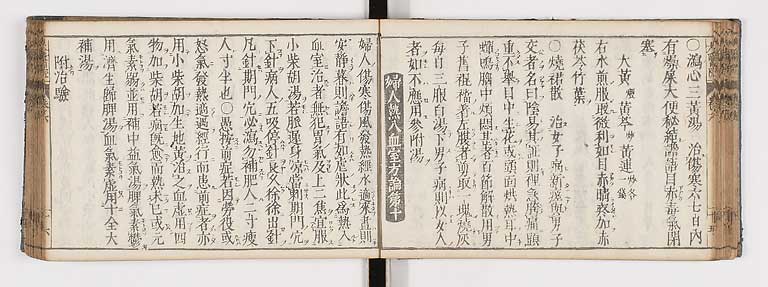 〇瀉心三黃湯 治傷寒六七日內
有燥屎大便秘結譫語目赤毒氣閉
塞
大黃 黃芩 黃連
右水煎服服微利如目赤睛疼加赤
茯苓竹葉
〇燒裙散 治女子病新瘥與男子
交者名曰陰易其証則裡急腰痛頭
重不舉目中生花或頭面烘熱耳中
蟬鳴腦中煩悶甚者百節解散用男
子舊裩襠者在服者前取一塊燒灰
每日三服白湯下男子病則以女人
者如不應用參附湯
婦人熱入血室方論第十
婦人傷寒傷風發熱經水適來晝則
安靜暮則譫語有如瘧狀此為熱入
血室治者無犯胃氣及上二焦宜服
小柴胡湯若脈遲身涼當刺期門穴
下針病人五吸停針良久徐徐出針
凡針期門穴必瀉勿補肥人二寸瘦
人寸半也〇愚按前症若因勞役或
怒氣發熱適遇經行而患前症者亦
用小柴胡加生地黃治之血虛用四
物加柴胡若病既愈而熱未已或元
氣素弱並用補中益氣湯脾氣素鬱
用濟生歸脾湯血氣素虛用十全大
補湯
附治驗